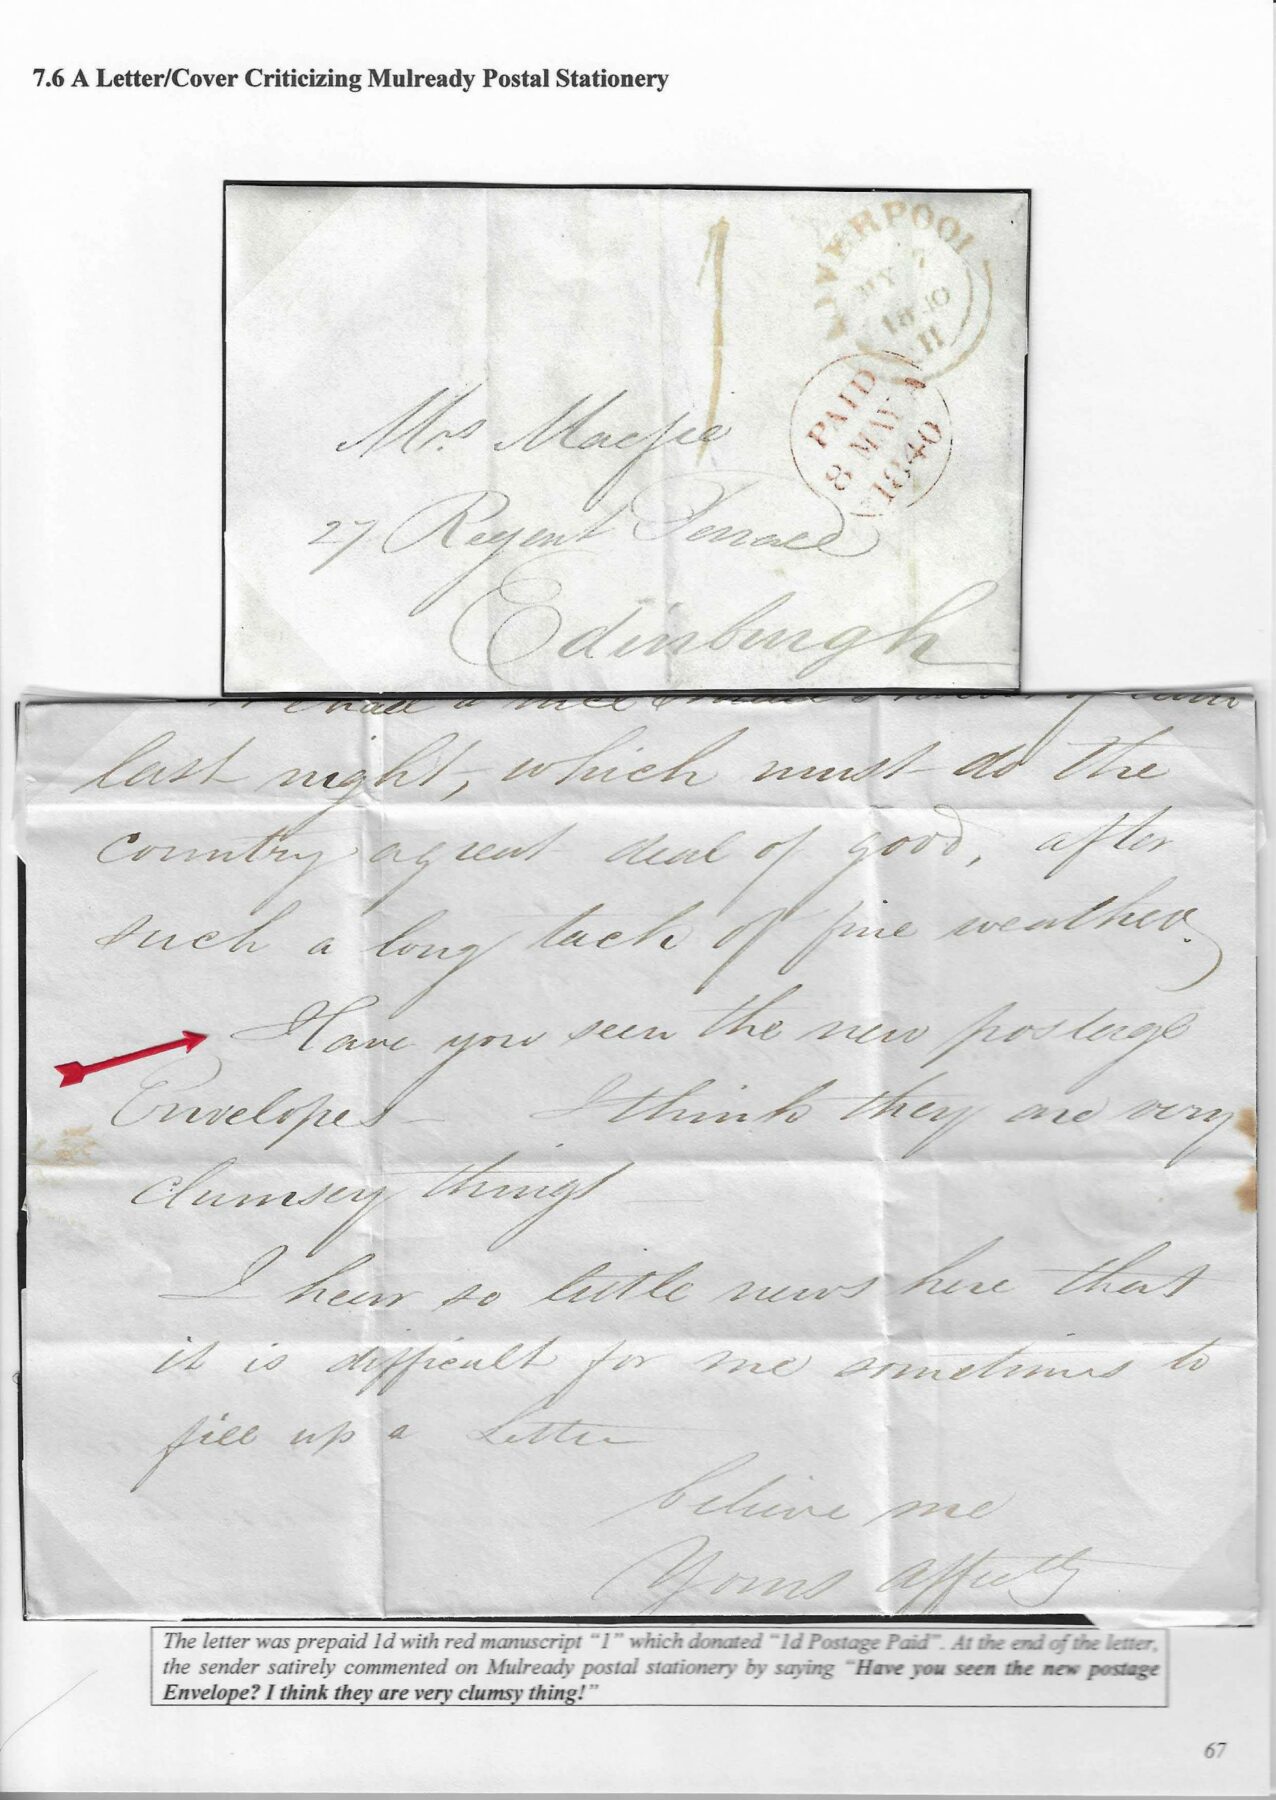 7.6 A Letter/Cover Criticizing Mulready Postal Stationery
LIVERPOOL
MY 7
1840
H
1
PAID
8 MAY
1840
Mrs Macfie
27 Regent Terrace
Edinburgh
last night, which must do the
country a great deal of good, after
such a long tack of fine weather.
Have you seen the new postage
Envelopes - I think they are very
clumsey things
I hear so little news here that
it is difficult for me sometimes to
fill up a Letter
believe me
Yours affectly
The letter was prepaid 1d with red manuscript "1" which donated "1d Postage Paid". At the end of the letter,
the sender satirely commented on Mulready postal stationery by saying "Have you seen the new postage
Envelope? I think they are very clumsy thing!"
67